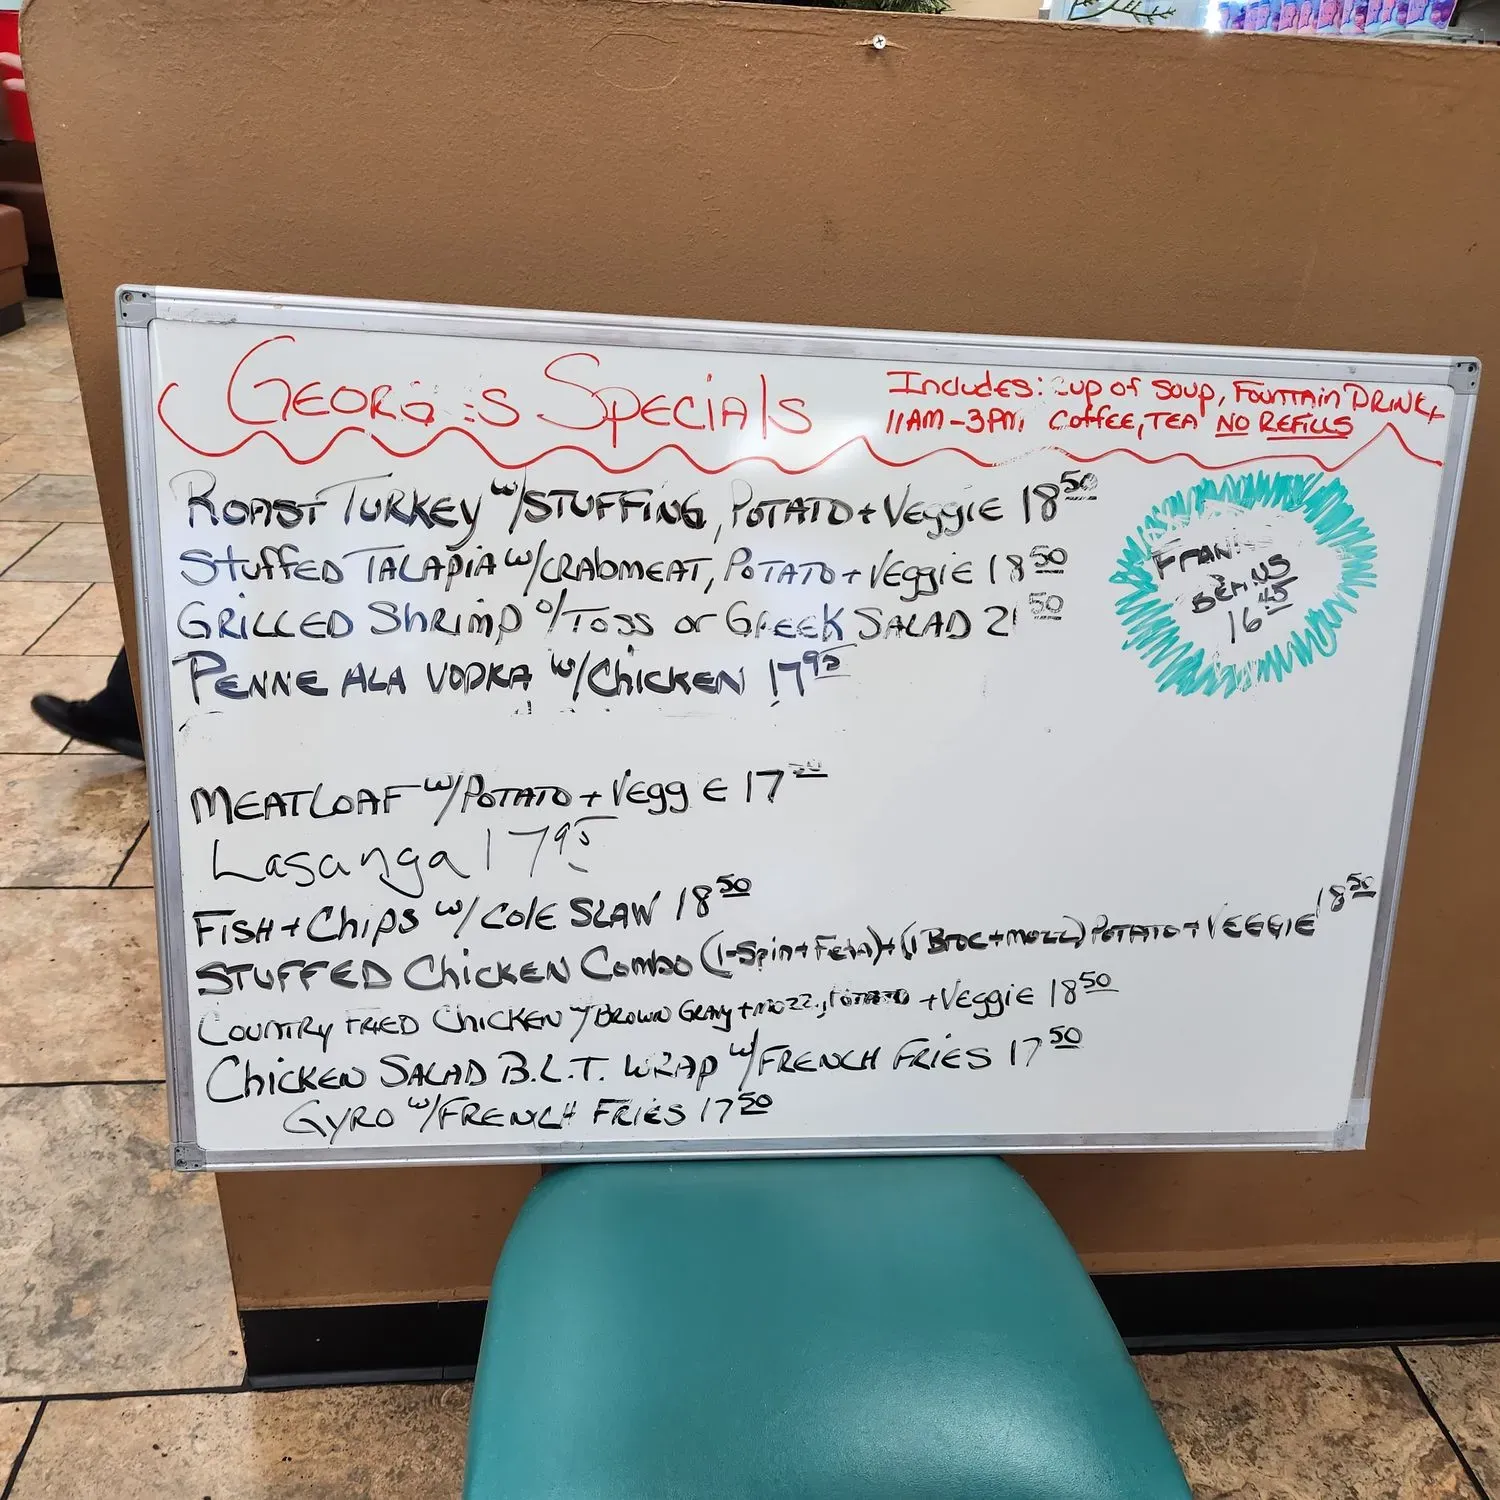 George's Specials
Includes: Cup of Soup, Fountain Drink,
11AM-3PM, Coffee, Tea NO REFILLS
Roast Turkey w/Stuffing, Potato + Veggie 18 50
Stuffed Talapia w/Crabmeat, Potato + Veggie 18 50
Grilled Shrimp o/Toss or Greek Salad 21 50
Penne ala Vodka w/Chicken 17 95
Franks
Beans
16 45
Meatloaf w/Potato + Veggie 17 50
Lasanga 17 95
Fish + Chips w/Cole Slaw 18 50
Stuffed Chicken Combo (1-Spin+Feta)+(1 Broc+Mozz) Potato + Veggie 18 50
Country Fried Chicken w/Brown Gravy + Mozz., Potato + Veggie 18 50
Chicken Salad B.L.T. Wrap w/French Fries 17 50
Gyro w/French Fries 17 50